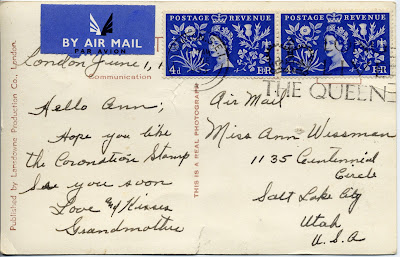 BY AIR MAIL
PAR AVION
POSTAGE REVENUE
4d E II R
POSTAGE REVENUE
4d E II R
THE QUEEN
London June 1, 1
Communication
Hello Ann;
Hope you like
the Coronation Stamp
See you soon
Love and Kisses
Grandmother
Published by Lansdowne Production Co., London
THIS IS A REAL PHOTOGRAPH
Air Mail
Miss Ann Wissman
1135 Centennial
Circle
Salt Lake City
Utah
U.S.A